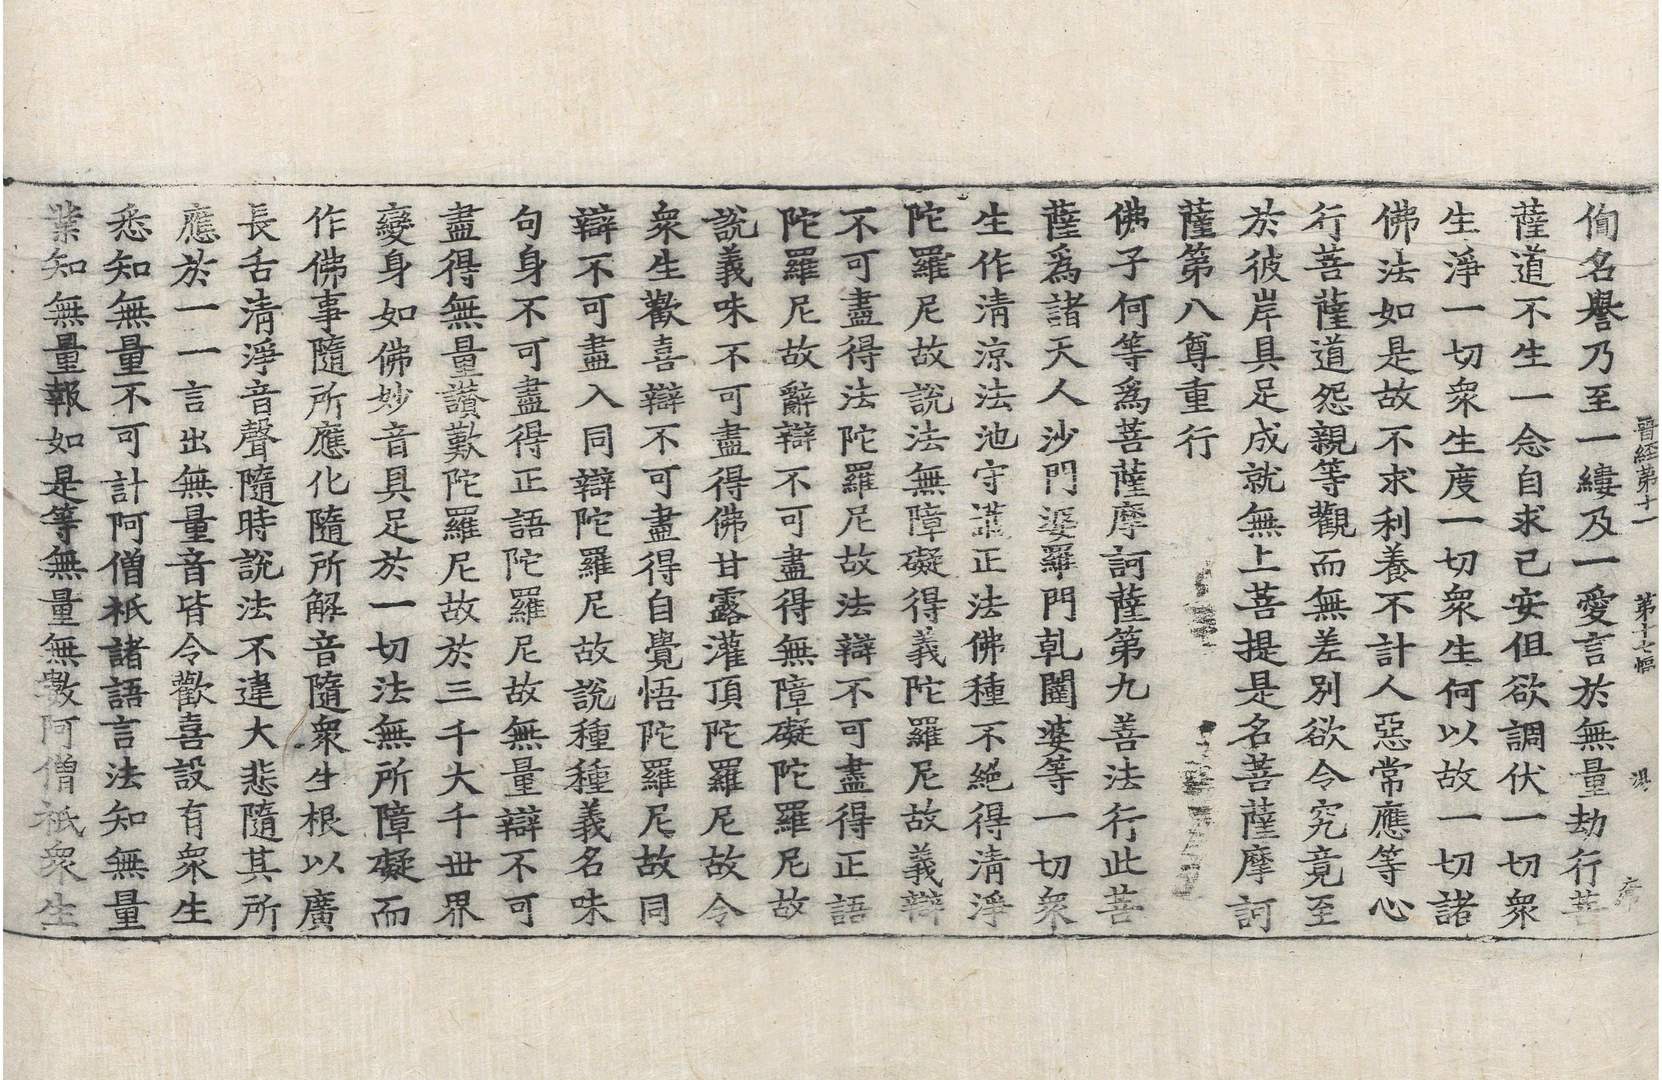 晉經第十一　第十七幅
侚名譽乃至一縷及一愛言於無量劫行菩
薩道不生一念自求己安但欲調伏一切衆
生淨一切衆生度一切衆生何以故一切諸
佛法如是故不求利養不計人惡常應等心
行菩薩道怨親等觀而無差別欲令究竟至
於彼岸具足成就無上菩提是名菩薩摩訶
薩第八尊重行
佛子何等爲菩薩摩訶薩第九善法行此菩
薩爲諸天人沙門婆羅門乹闥婆等一切衆
生作清涼法池守護正法佛種不絕得清淨
陀羅尼故說法無障礙得義陀羅尼故義辯
不可盡得法陀羅尼故法辯不可盡得正語
陀羅尼故辭辯不可盡得無障礙陀羅尼故
說義味不可盡得佛甘露灌頂陀羅尼故令
衆生歡喜辯不可盡得自覺悟陀羅尼故同
辯不可盡入同辯陀羅尼故說種種義名味
句身不可盡得正語陀羅尼故無量辯不可
盡得無量讃歎陀羅尼故於三千大千世界
變身如佛妙音具足於一切法無所障礙而
作佛事隨所應化隨所解音隨衆生根以廣
長舌清淨音聲隨時說法不違大悲隨其所
應於一一言出無量音皆令歡喜設有衆生
悉知無量不可計阿僧祇諸語言法知無量
業知無量報如是等無量無數阿僧祇衆生